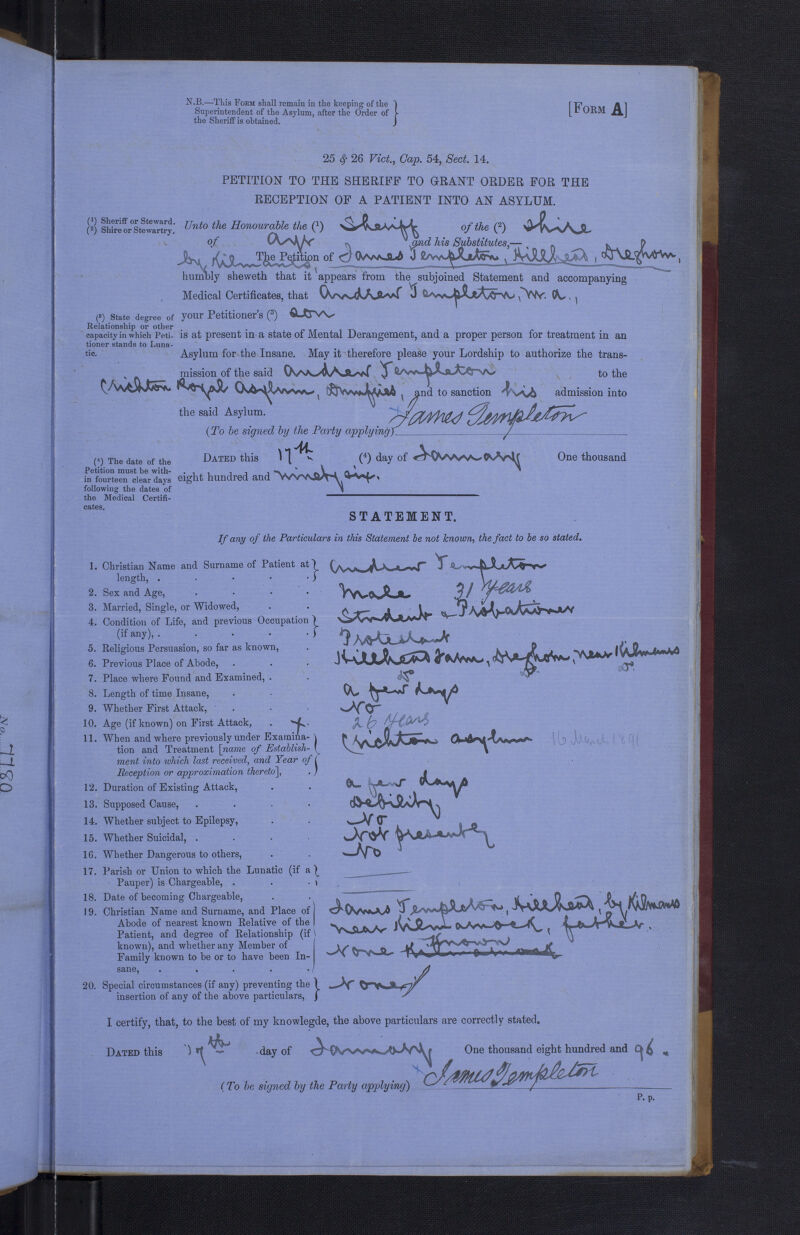 N.B.—This Form shall remain in the keeping of the
Superintendent of the Asylum, after the Order of
the Sheriff is obtained.
[Form A]
25 & 26 Vict., Cap. 54, Sect. 14.
PETITION TO THE SHERIFF TO GRANT ORDER FOR THE
RECEPTION OF A PATIENT INTO AN ASYLUM.
(¹) Sheriff or Steward.
(²) Shire or Stewartry.
Unto the Honourable the (¹) Sheriff of the (²) Shire
of Ayr and his Substitutes,—
The Petition of James Templeton, Hillhead, Dreghorn,
by Kilmaurs,
humbly sheweth that it appears from the subjoined Statement and accompanying
Medical Certificates, that Andrew Templeton, M.A.,
(³) State degree of
Relationship or other
capacity in which Peti-
tioner stands to Luna-
tic.
your Petitioner's (³) Son
is at present in a state of Mental Derangement, and a proper person for treatment in an
Asylum for the Insane. May it therefore please your Lordship to authorize the trans-
mission of the said Andrew Templeton to the
Crichton Royal Asylum, Dumfries, and to sanction his admission into
the said Asylum.
(To be signed by the Party applying) James Templeton
(⁴) The date of the
Petition must be with-
in fourteen clear days
following the dates of
the Medical Certifi-
cates.
Dated this 17th (⁴) day of January One thousand
eight hundred and ninety six.
STATEMENT.
If any of the Particulars in this Statement be not known, the fact to be so stated.
1. Christian Name and Surname of Patient at
length, . Andrew Templeton
2. Sex and Age, Male 31 years
3. Married, Single, or Widowed,
4. Condition of Life, and previous Occupation
(if any), . Student & Probationer
5. Religious Persuasion, so far as known, Protestant
6. Previous Place of Abode, Hillhead Farm, Dreghorn, near Kilmaurs
7. Place where Found and Examined, do do do
8. Length of time Insane, a few days
9. Whether First Attack, No
10. Age (if known) on First Attack, 26 years
11. When and where previously under Examina-
tion and Treatment [name of Establish-
ment into which last received, and Year of
Reception or approximation thereto], Crichton asylum 16 March 1891
12. Duration of Existing Attack, a few days
13. Supposed Cause, Debility
14. Whether subject to Epilepsy, No
15. Whether Suicidal, Not presently
16. Whether Dangerous to others, No
17. Parish or Union to which the Lunatic (if a
Pauper) is Chargeable,
18. Date of becoming Chargeable,
19. Christian Name and Surname, and Place of
Abode of nearest known Relative of the
Patient, and degree of Relationship (if
known), and whether any Member of
Family known to be or to have been In-
sane,
James Templeton, Hillhead, by Kilmaurs
near Kilmarnock, father.
None Kilmarnock known
20. Special circumstances (if any) preventing the
insertion of any of the above particulars, None
I certify, that, to the best of my knowlegde, the above particulars are correctly stated.
Dated this 17th day of January One thousand eight hundred and 96.
(To be signed by the Party applying) James Templeton
P. p.